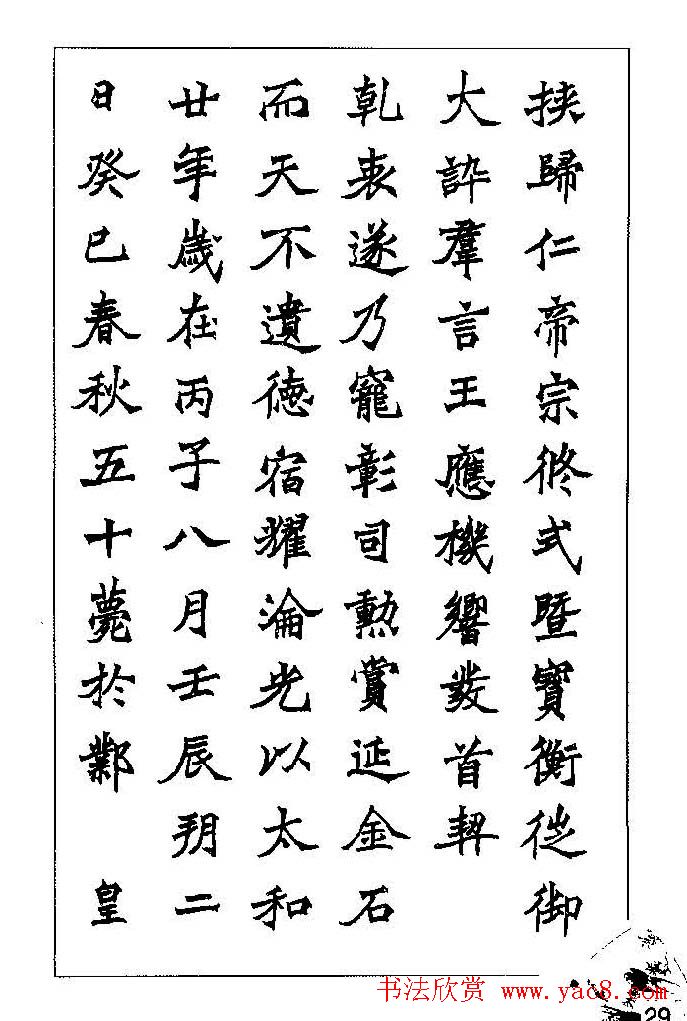 挟歸仁帝宗脩式暨寳衡徙御
大訡羣言王應機響發首契
乹衷遂乃寵彰司勲賞延金石
而天不遺徳宿耀淪光以太和
廿年歲在丙子八月壬辰朔二
日癸巳春秋五十薨於鄴　皇
书法欣赏 www.yac8.com
29